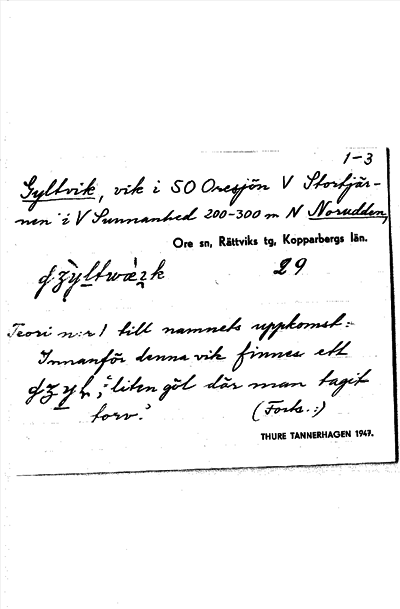 1-3
Gyltvik, vik i SO Oresjön V Stortjär-
nen i V Sunnanhed 200-300 m N Norudden,
Ore sn, Rättviks tg, Kopparbergs län.
29
Teori n:r 1 till namnets uppkomst:
Innanför denna vik finnes ett
"liten göl där man tagit
torv." (Forts.:)
THURE TANNERHAGEN 1947.